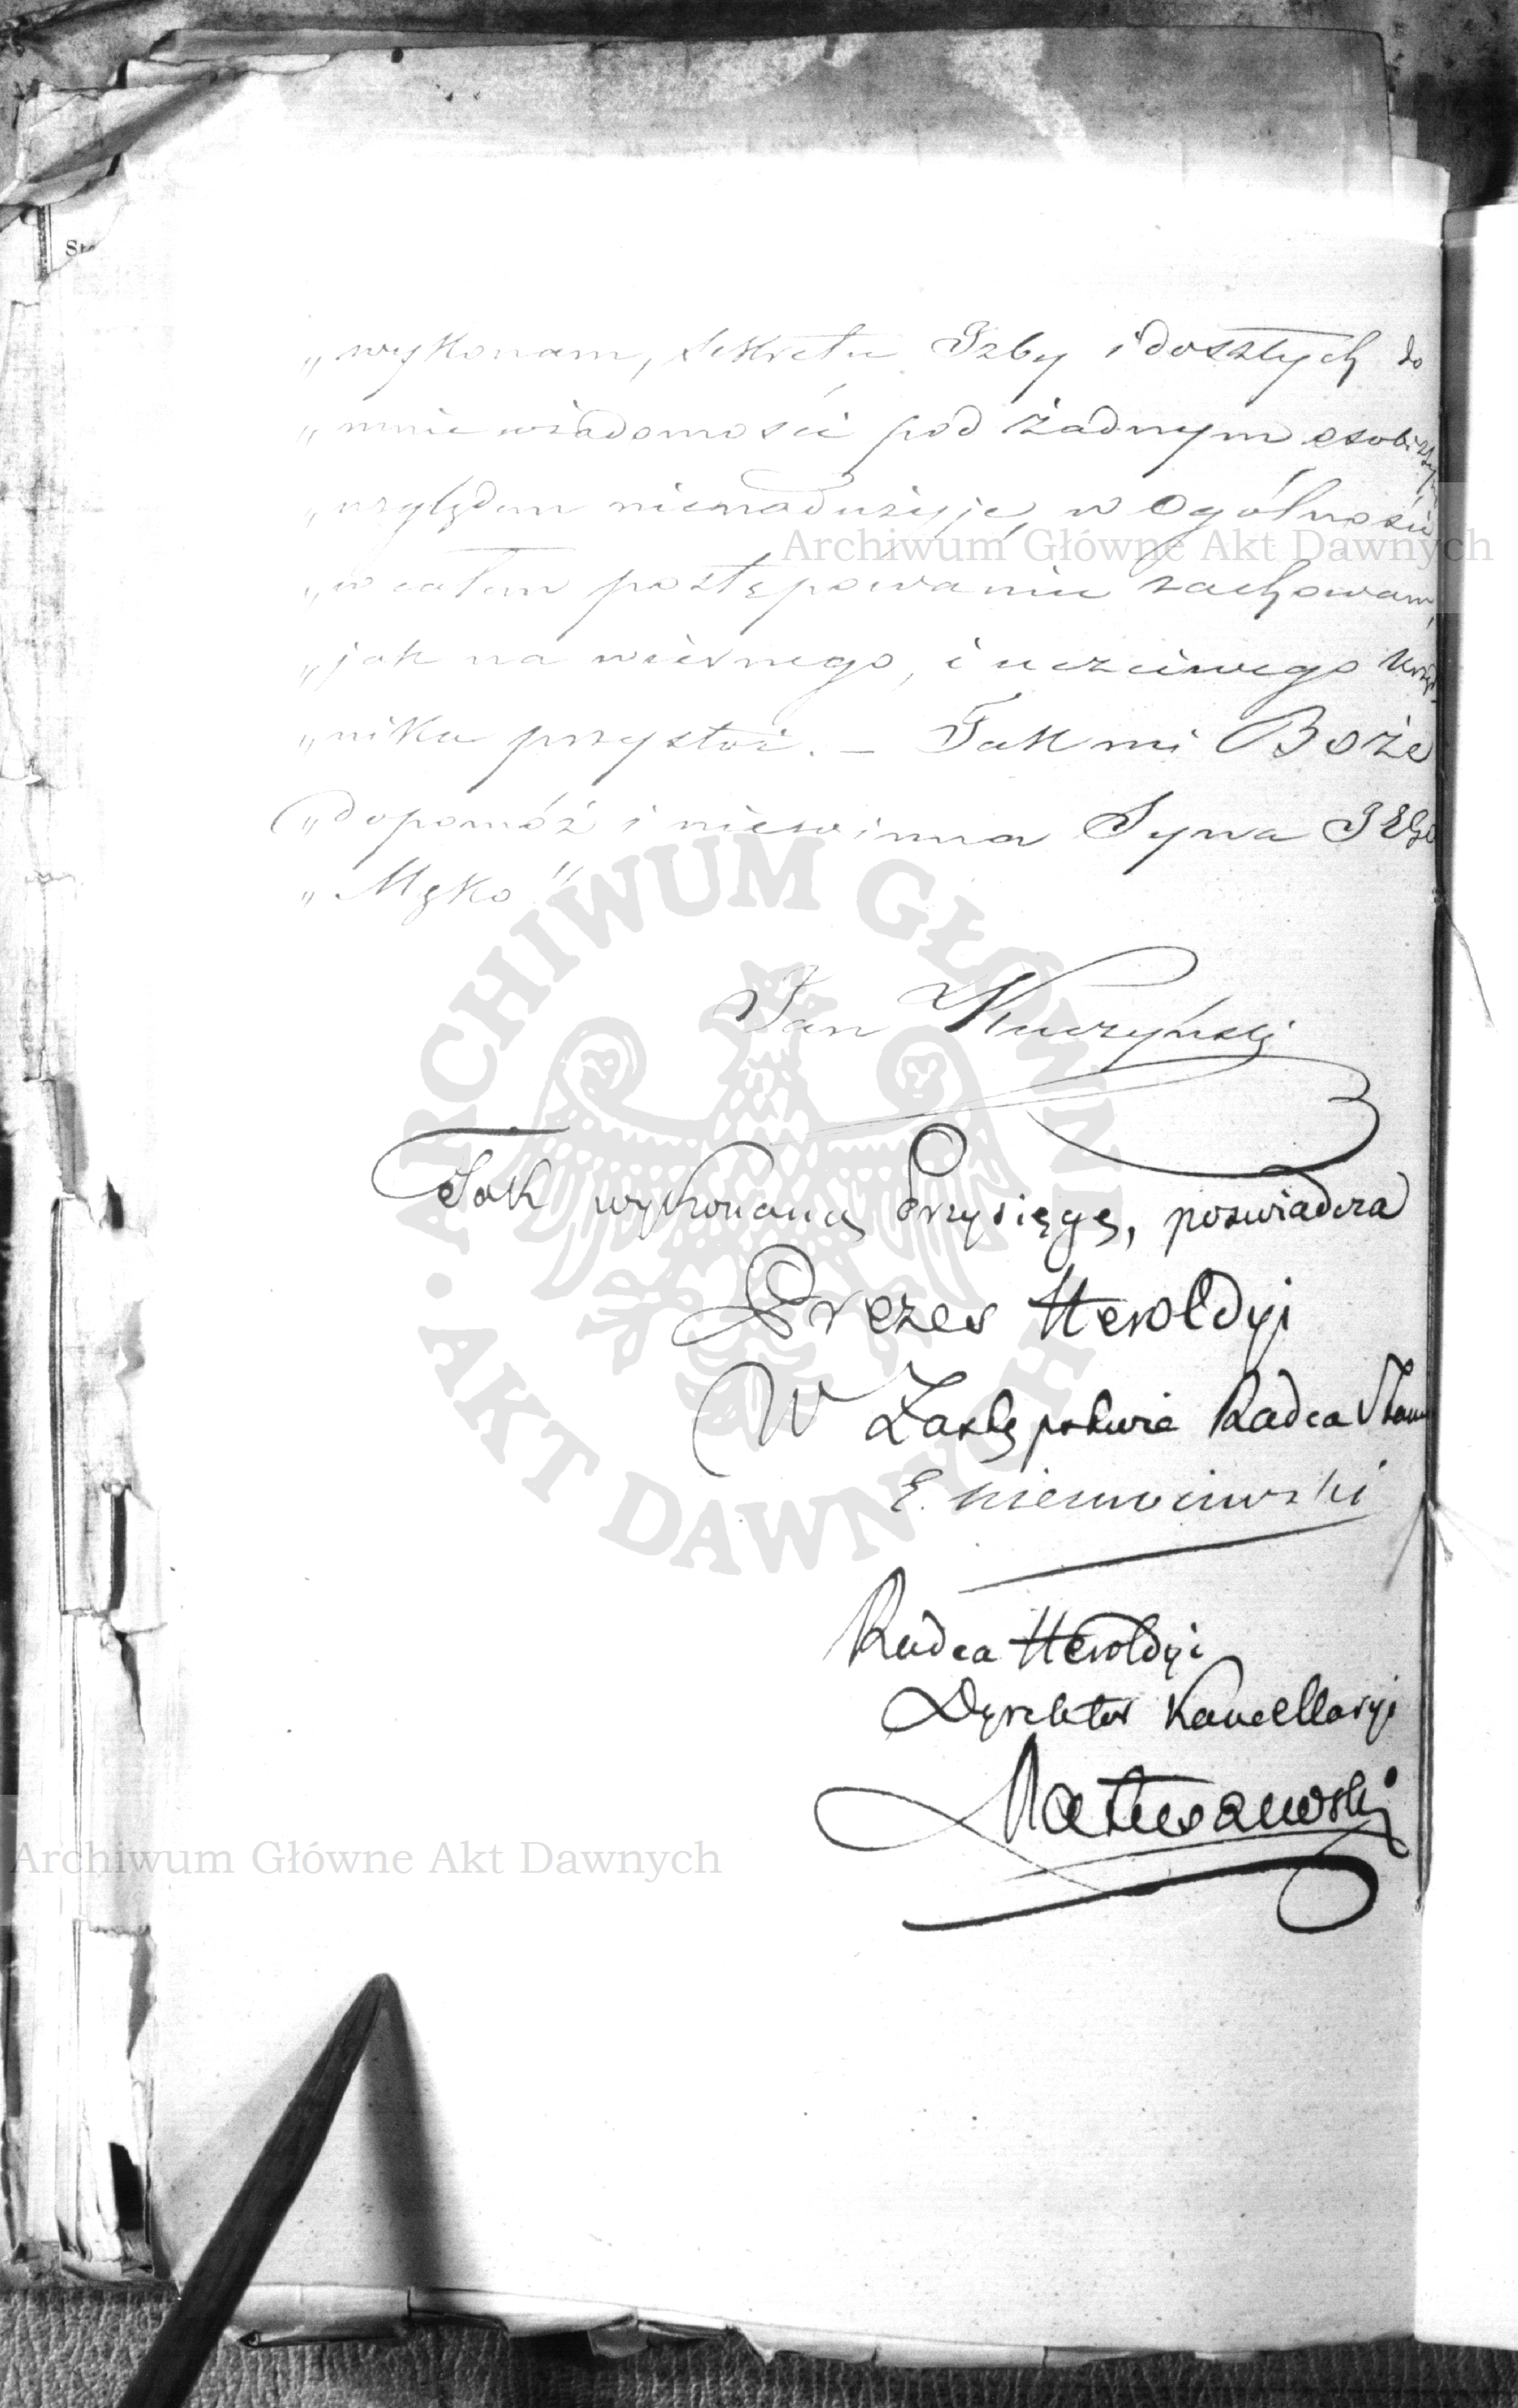 „wykonam, sekretu Izby i doszłych do
„mnie wiadomości pod żadnym osobistym
„względem nienadużyję, w ogólności
„w całem postępowaniu zachowam,
„jak na wiernego, i uczciwego Urzęd-
„nika przystoi. – Tak mi Boże
„dopomóż i niewinna Syna JEGO
„Męko"
Jan Kuczyński
Tak wykonaną Przysięgę, poswiadcza
Prezes Heroldyi
W Zastępstwie Radca Stanu
E. Niemoiewski
Radca Heroldyi
Dyrektor Kancellaryi
Matuszewski
Archiwum Główne Akt Dawnych
ARCHIWUM GŁÓWNE • AKT DAWNYCH •
Archiwum Główne Akt Dawnych